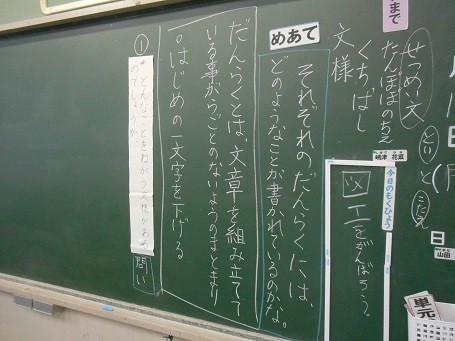 まで
せつめい文
たんぽぽのちえ
とい
と
こたえ
くちばし
文様
めあて
それぞれのだんらくには、
どのようなことが書かれているのかな。
だんらくとは、文章を組み立てて
いる事がらごとのないようのまとまり
○はじめの一文字を下げる
①
どんなことをねがう文様があ
のでしょうか。
問い
今日のもくひょう
図工をがんばろう。
日
山田
単元